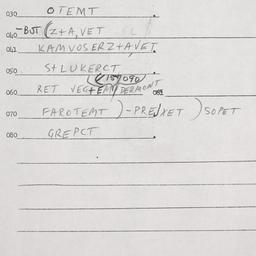 030 OTEMT
040 -BUT (Z+A, VET
041 KAMVOSERZ+AVET
050 S+LUKERCT
(15)(090)
060 RET VEG+EAN DERMONT 061
070 FAROTEMT )-PRE/XET ) SOPET
080 GREPCT